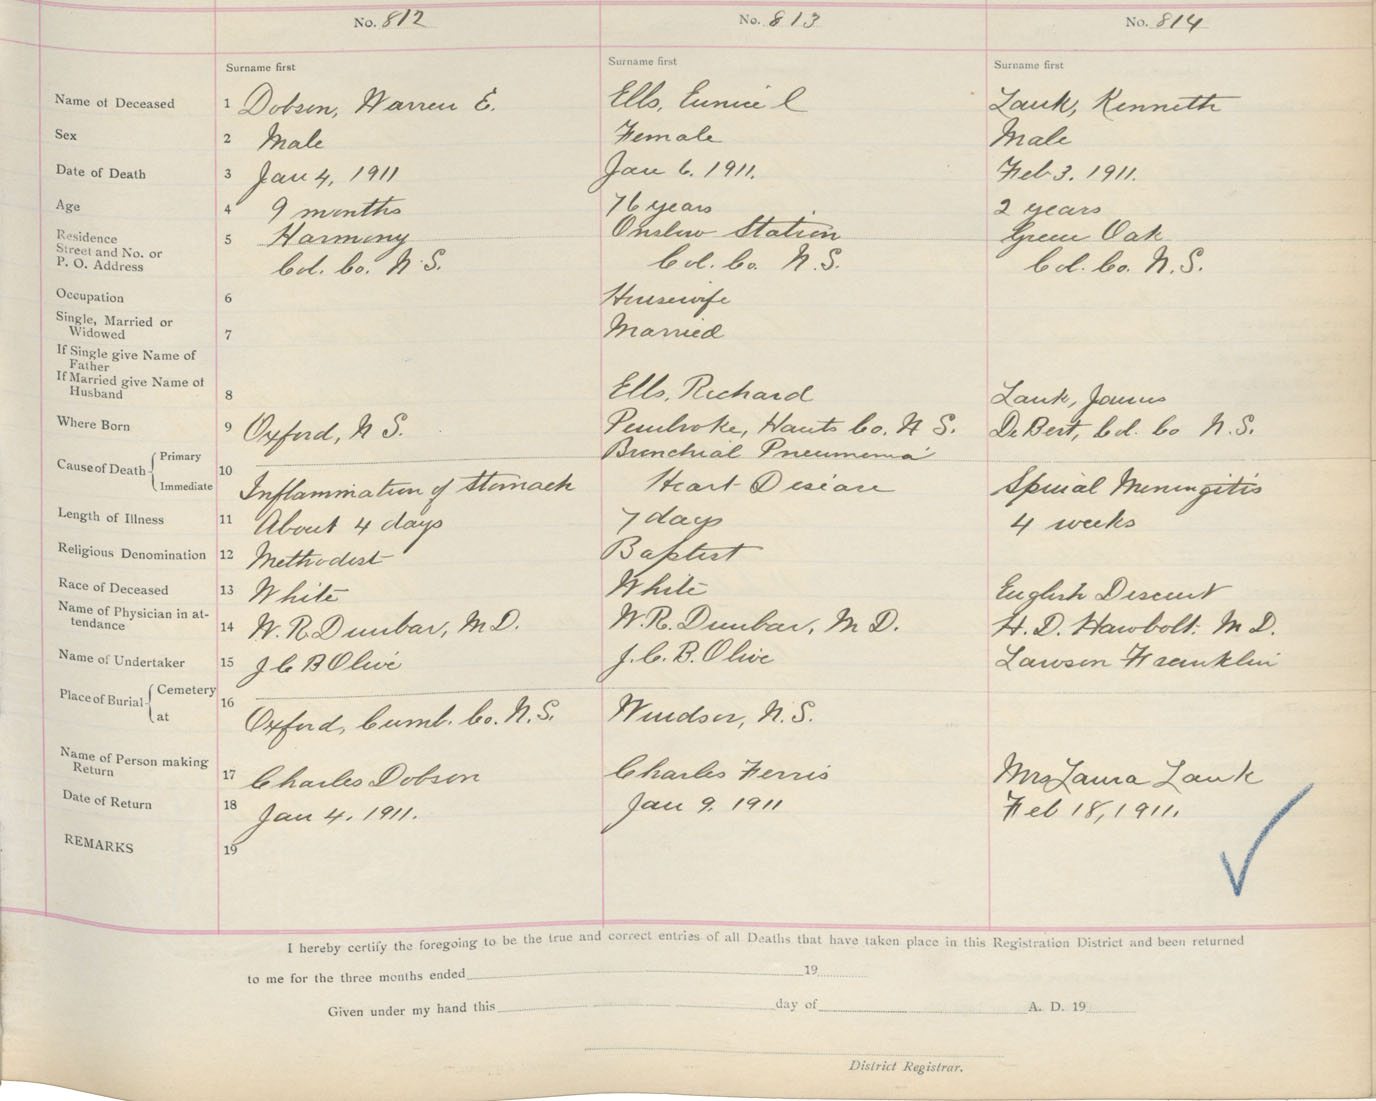 No. 812 No. 813 No. 814
Surname first Surname first Surname first
Name of Deceased 1 Dobson, Warren E. Ells, Eunice E Lank, Kenneth
Sex 2 Male Female Male
Date of Death 3 Jan 4, 1911 Jan 6. 1911. Feb 3. 1911.
Age 4 9 months 76 years 2 years
Residence 5 Harmony Onslow Station Green Oak
Street and No. or
P. O. Address Col. Co. N.S. Col. Co. N.S. Col. Co. N.S.
Occupation 6 Housewife
Single, Married or
Widowed 7 Married
If Single give Name of
Father
If Married give Name of
Husband 8 Ells, Richard Lank, James
Where Born 9 Oxford, N S. Pembroke, Hants Co. N S. DeBert, Col. Co N.S.
Cause of Death Primary 10 Bronchial Pneumonia
Immediate Inflammation of Stomach Heart Disease Spinal Meningitis
Length of Illness 11 About 4 days 7 days 4 weeks
Religious Denomination 12 Methodist Baptist
Race of Deceased 13 White White English Descent
Name of Physician in at-
tendance 14 W. R. Dunbar, M D. W. R. Dunbar, M D. H. D. Hawbolt. M D.
Name of Undertaker 15 J C B Olive J. C. B. Olive Lawson Franklin
Place of Burial Cemetery 16
at Oxford, Cumb. Co. N.S. Windsor, N.S.
Name of Person making
Return 17 Charles Dobson Charles Ferris Mrs Laura Lank
Date of Return 18 Jan 4. 1911. Jan 9. 1911 Feb 18, 1911.
REMARKS 19
I hereby certify the foregoing to be the true and correct entries of all Deaths that have taken place in this Registration District and been returned
to me for the three months ended 19
Given under my hand this day of A. D. 19
District Registrar.